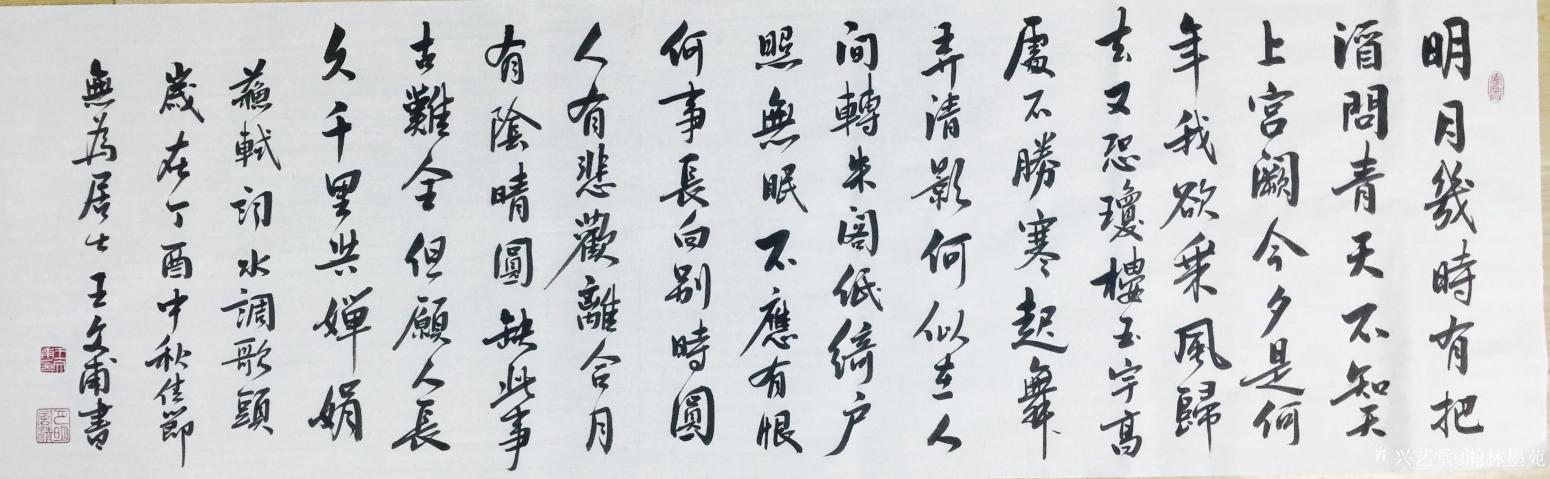 明月幾時有把
酒問青天不知天
上宮闕今夕是何
年我欲乗風歸
去又恐瓊樓玉宇高
處不勝寒起舞
弄清影何似在人
間轉朱閣低綺户
照無眠不應有恨
何事長向别時圓
人有悲歡離合月
有陰晴圓缺此事
古難全但願人長
久千里共嬋娟
蘇軾詞水調歌頭
歲在丁酉中秋佳節
無為居士王文甫書
兴艺堂@瀚林墨苑